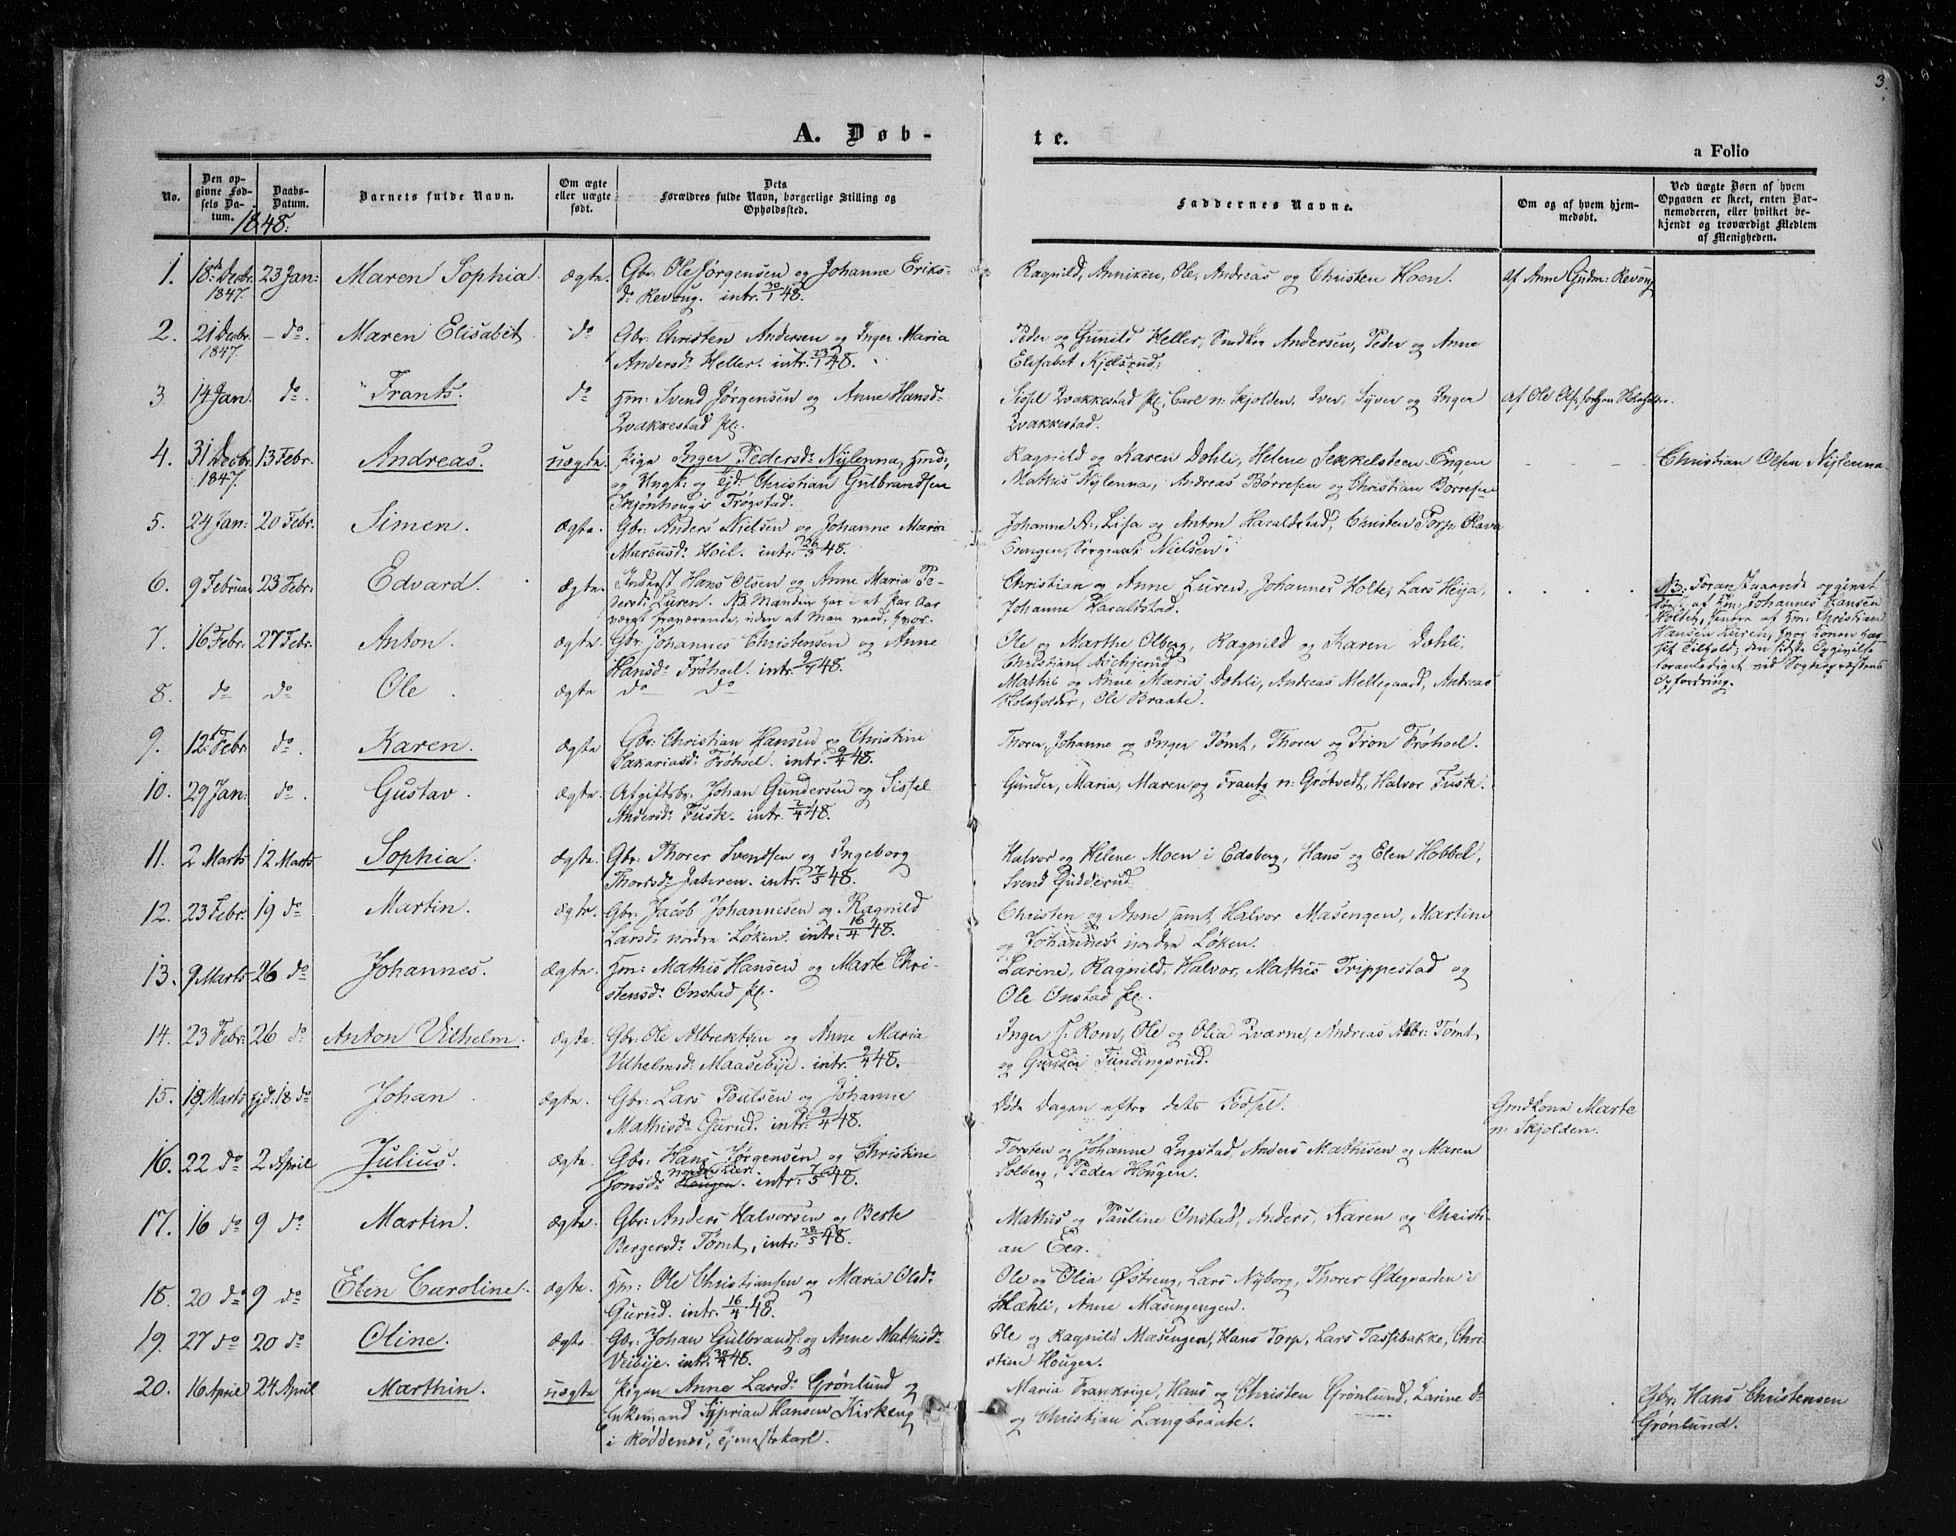 3.
A. Døb-
te.
a Folio
No.
Den op-
givne Fød-
sels Da-
tum.
Daabs-
Datum.
Barnets fulde Navn.
Om ægte
eller uægte
født.
Dets
Forældres fulde Navn, borgerlige Stilling og
Opholdssted.
Faddernes Navne.
Om og af hvem hjem-
medøbt.
Ved uægte Børn af hvem
Opgaven er skeet, enten Bar-
nemoderen, eller hvilket be-
kjendt og troværdigt Medlem
af Menigheden.
1848.
1. 18de Decbr. 1847. 23 Jan: Maren Sophia. ægte. Gbr. Ole Jørgensen og Johanne Eriks-
dr. Revoug. intr. 30/1 48.
Ragnild, Anniken, Ole, Andreas og Christen Hoen.
af Anne Gudm: Revoug
2. 21 Decbr. 1847. do. Maren Elisabet do Gbr. Christen Andersen og Inger Maria
Andersdr. Heller. intr. 23/1 48.
Peder og Gunild Heller, Andersen, Peder og Anne
Elisabet Kjelsrud.
3. 14 Jan. do. Frants. do Hm: Svend Jørgensen og Anne Hansdr.
Qvakkestad
Sissel Qvakkestad Carl n: Skjolden, Iver, Syver og Inger
Qvakkestad.
af Ole
4. 31 Decbr. 1847. 13 Febr. Andreas. uægte. Pige Inger Pedersdr. Nylenna,
og Ungk: og Christian Gulbrandsen
Skjønhoug i Trøgstad.
Ragnild og Karen Dahli, Helene Sekkelsteen Engen
Mathis Nylenna, Andreas Børresen og Christian Borresen
Christian Olsen Nylenna
5. 24 Jan: 20 Febr. Simen. ægte. Gbr. Anders Nielsen og Johanne Maria
Marcusdr. Hoil. intr. 26/3 48.
Johanne A., Lisa og Anton Haraldstad, Christen Torp, Olava
Enngen, Nielsen.
6. 9 Februar 23 Febr. Edvard. ægte. Inderst Hans Olsen og Anne Maria Pe-
dersdr. Luren. NB Manden har i et Par Aar
været fraværende, uden at man veed, hvor.
Christian og Anne Luren, Johannes Holte, Lars Heija,
Johanne Haraldstad.
NB. Foranstaaende opgivet
af Hm: Johannes Hansen
Holte, af Hm: Christian
Hansen Luren, hvor Konen har
sit Tilhold; den sidste Opgivelse
foranlediget ved Sogneprestens
Opfordring.
7. 16 Febr. 27 Febr. Anton. ægte. Gbr. Johannes Christensen og Anne
Hansdr. Frøhoel. intr. 9/4 48.
Ole og Marthe Olberg, Ragnild og Karen Dahli,
Christiane
8. do do Ole. ægte do do
Mathis og Anne Maria Dahli, Andreas Mellegaard, Andreas
Holsfolder, Ole Braate.
9. 12te Febr. do. Karen. ægte Gbr: Christian Hansen og Christine
Sakariasdr. Frøhoel. intr. 9/4 48.
Thorer, Johanne og Inger Tømt, Thorer og Tron Frøhoel.
10. 29 Jan: do. Gustav. ægte. Afgiftsbr. Johan Gundersen og Sissel
Andersdr. Fusk. intr. 2/4 48.
Gunder, Maria, Maren og Frantz n: Grøtvedt, Halvor Fusk.
11. 2 Marts 12 Marts Sophia. ægte. Gbr: Thorer Svendsen og Ingeborg
Thorsdr. Jateren. intr. 7/5 48.
Halvor og Helene Moen i Edsberg, Hans og Elen Hobbel,
Svend Gudderud
12. 23 Febr. 19 do Martin. ægte. Gbr. Jacob Johannesen og Ragnild
Larsdr. nordre Løken. intr. 16/4 48.
Christen og Anne samt Halvor Masengen, Martine
og Johannes nordre Løken.
13. 9 Marts 26 do Johannes. ægte. Hm: Mathis Hansen og Marte Chri-
stensdr. Onstad
Larine, Ragnild, Halvor, Mathis Trippestad og
Ole Onstad
14. 23 Febr: 26 do Anton Vilhelm. ægte. Gbr. Ole Albrektsen og Anne Maria
Vilhelmsdr. Maasebye. intr. 9/4 48.
Inger s: Rom, Ole og Olia Qværne, Andreas Albr: Tømt,
og Tundingsrud.
15. 18 Marts hjd: 18 do Johan ægte. Gbr: Lars Poulsen og Johanne
Mathisdr. Gurud. intr. 9/4 48.
Døde Dagen efter dets Fødsel.
Gmdkone Marte
n: Skjolden.
16. 22 do 2 April Julius. ægte. Gbr: Hans Jørgensen og Christine
nordre
Jonsdr. Hougen. intr. 7/5 48.
Torsten og Johanne Ingstad, Anders Mathisen og Maren
Solberg, Peder Hougen.
17. 16 do 9 do Martin. ægte. Gbr: Anders Halvorsen og Berte
Bergersdr. Tømt, intr. 28/5 48.
Mathis og Pauline Onstad, Anders, Karen og Christi-
an Eeg.
18. 20 do 9 do Elen Caroline. ægte. Hm: Ole Christiansen og Maria Olsdr.
Gurud. intr. 16/4 48.
Ole og Olia Østreng, Lars Nyborg, Thorer Ødegaarden i
Hæhli, Anne Masengengen.
19. 27 do 20 do Oline. ægte. Gbr. Johan Gulbrands: og Anne Mathisdr.
Veibye. intr. 30/4 48.
Ole og Ragnild Masengen, Hans Torp, Lars Tassebakke, Chri-
stine Hougen.
20. 16 April 24 April Marthin. uægte Pigen Anne Larsdr. Grønlund og
Enkemand Syprian Hansen Kirkeng
i Røddenes, tjenestekarl.
Maria Frankrige, Hans og Christen Grønlund, Larine do
og Christian Langbraate.
Gbr: Hans Christensen
Grønlund.